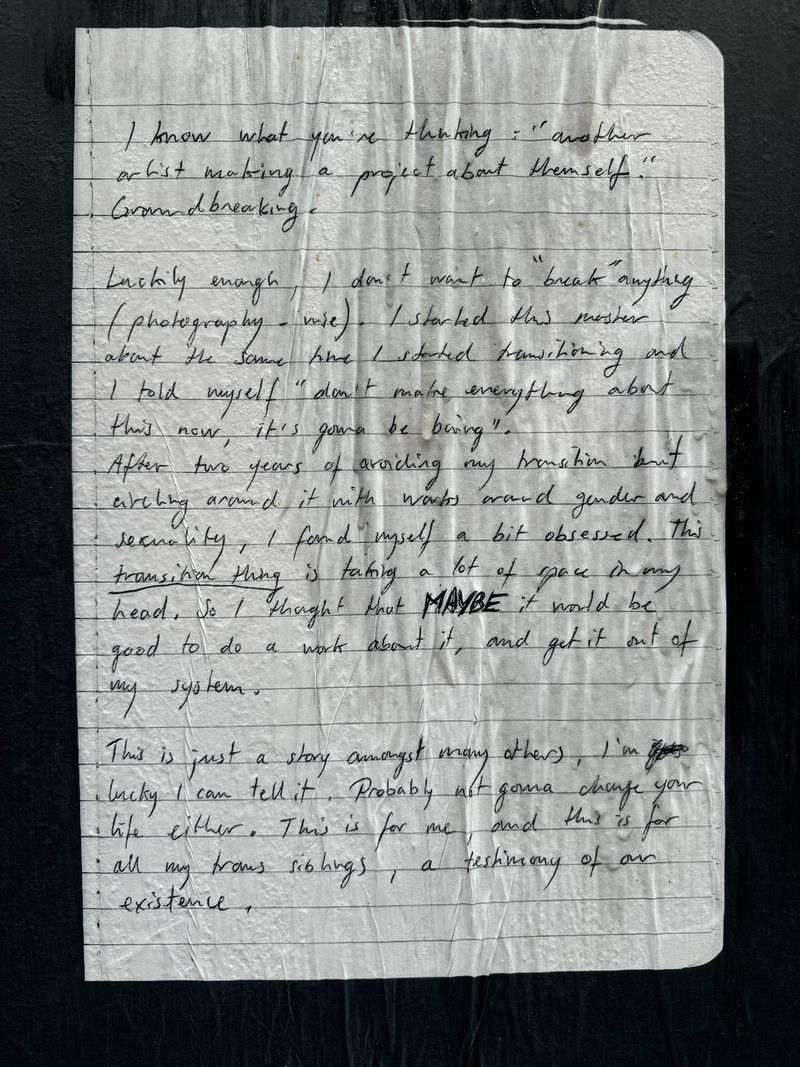 I know what you're thinking : "another
artist making a project about themself."
Groundbreaking.
Luckily enough, I don't want to "break" anything
(photography - wise). I started this master
about the same time I started transitioning and
I told myself "don't make everything about
this now, it's gonna be boring".
After two years of avoiding my transition but
circling around it with works around gender and
sexuality, I found myself a bit obsessed. This
transition thing is taking a lot of space in my
head. So I thought that MAYBE it would be
good to do a work about it, and get it out of
my system.
This is just a story amongst many others, I'm
lucky I can tell it. Probably not gonna change your
life either. This is for me, and this is for
all my trans siblings, a testimony of our
existence.